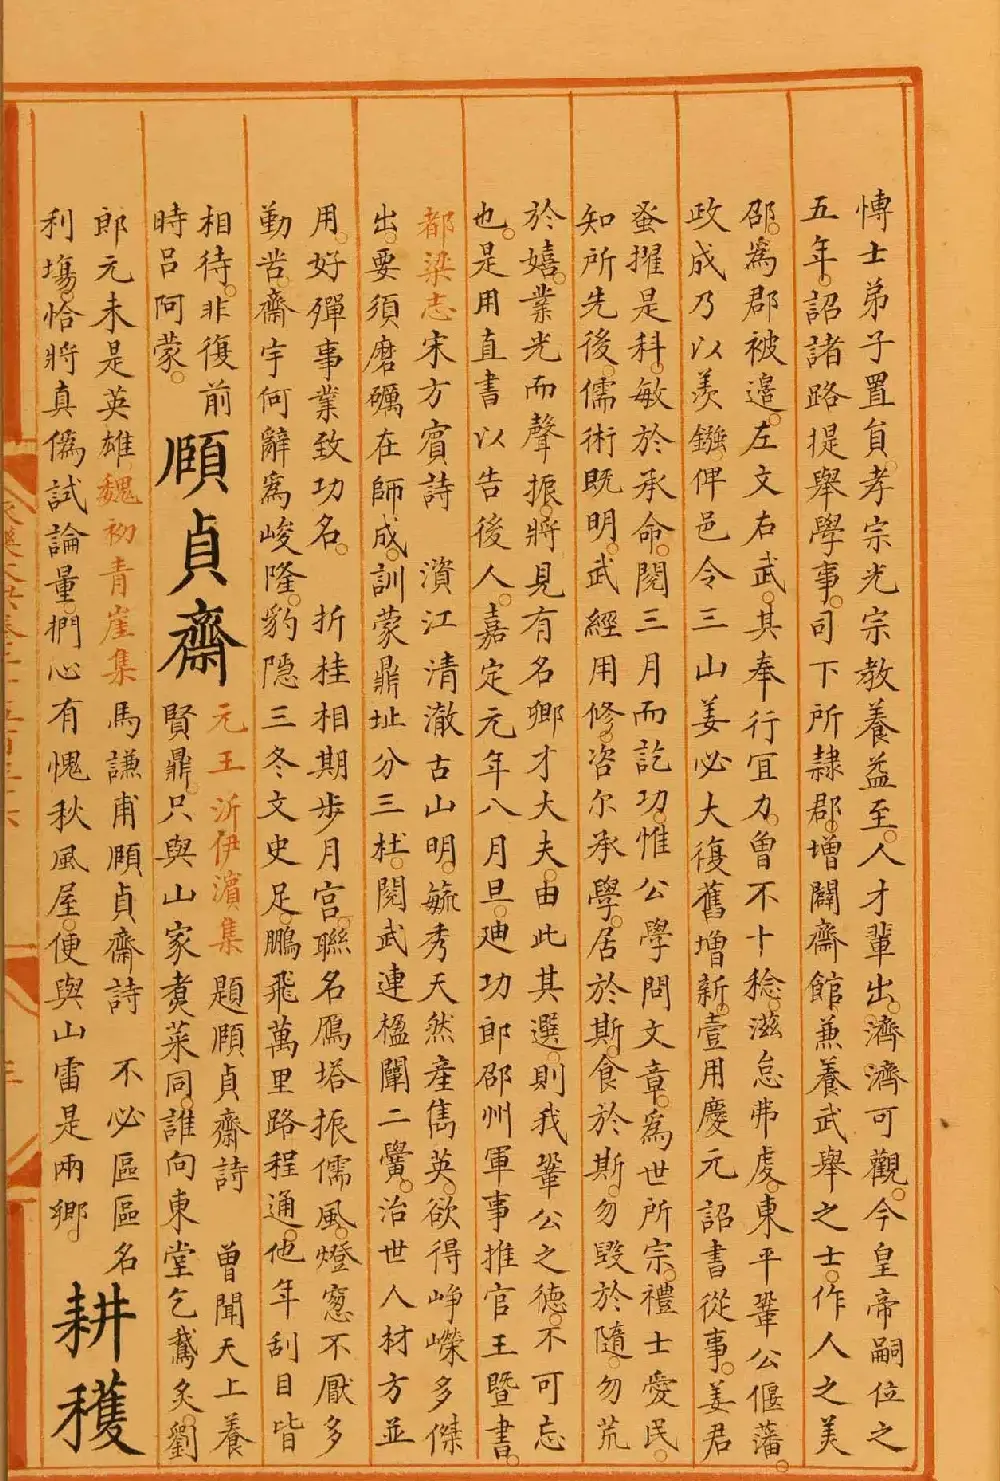 博士弟子置員孝宗光宗教養益至人才輩出濟濟可觀今皇帝嗣位之
五年詔諸路提舉學事司下所隸郡增闢齋館兼養武舉之士作人之美
邵為郡被邉左文右武其奉行宜力曾不十稔滋怠弗䖍東平鞏公偃藩
政成乃以羨鏹俾邑令三山姜必大復舊增新壹用慶元詔書從事姜君
蚤擢是科敏於承命閱三月而訖功惟公學問文章為世所宗禮士愛民
知所先後儒術既明武經用修咨尔承學居於斯食於斯勿毀於隨勿荒
於嬉業光而聲振將見有名卿才大夫由此其選則我鞏公之德不可忘
也是用直書以告後人嘉定元年八月旦廸功郎邵州軍事推官王曁書
都梁志宋方賓詩 濱江清澈古山明毓秀天然産雋英欲得崢嶸多傑
出要須磨礪在師成訓蒙鼎址分三杜閱武連楹闡二黌治世人材方並
用好殫事業致功名 折桂相期歩月宫聯名鴈塔振儒風燈窓不厭多
勤苦齋宇何辭寫峻隆豹隱三冬文史足鵬飛萬里路程通他年刮目皆
相待非復前
時呂阿蒙
頥貞齋
元王沂伊濵集 題頥貞齋詩 曽聞天上養
賢鼎只與山家煑菜同誰向東堂乞鵞炙劉
郎元未是英雄魏初青崖集 馬謙甫頥貞齋詩 不必區區名
利塲恰將真僞試論量捫心有愧秋風屋便與山雷是兩鄉
耕穫